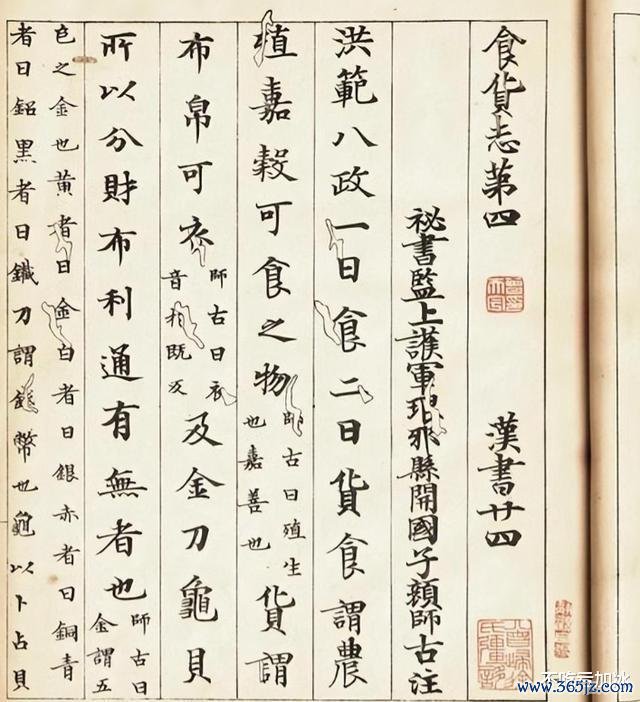 食貨志第四 漢書廿四
祕書監上護軍琅邪縣開國子顏師古注
洪範八政一曰食二曰貨食謂農
殖嘉穀可食之物師古曰殖生也嘉善也貨謂
布帛可衣師古曰衣音於既反及金刀龜貝
所以分財布利通有無者也師古曰金謂五
色之金也黃者曰金白者曰銀赤者曰銅青
者曰鉛黑者曰鐵刀謂錢幣也龜以卜占貝
www.365jz.com